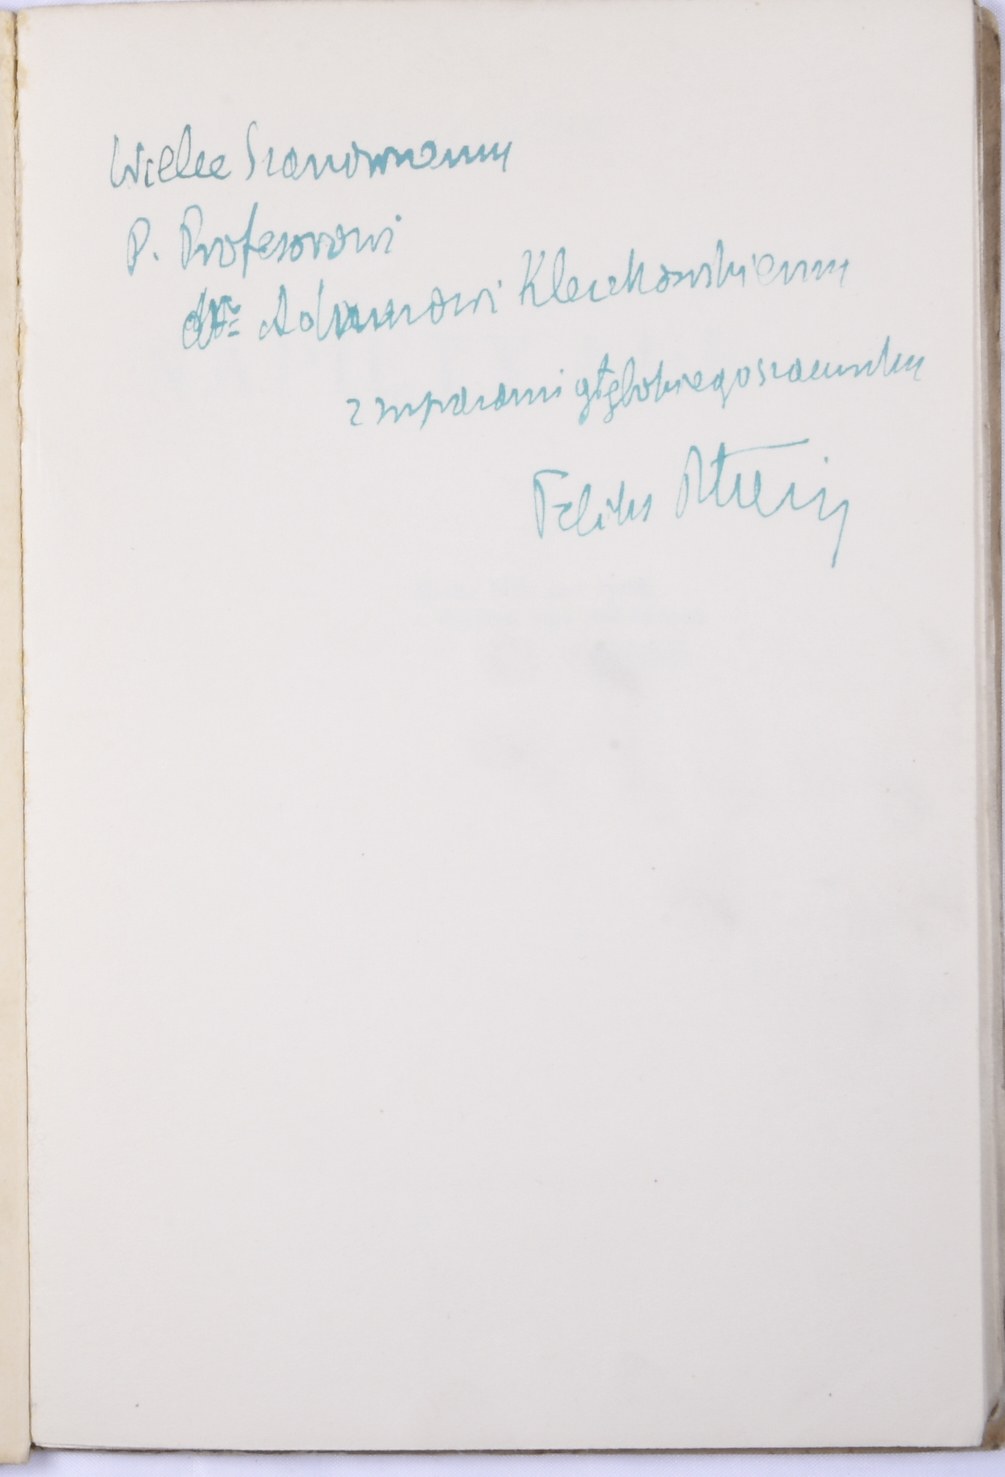 Wielce Szanownemu
P. Profesorowi
dr Adamowi Kleczkowskiemu
z wyrazami głębokiego szacunku
Feliks